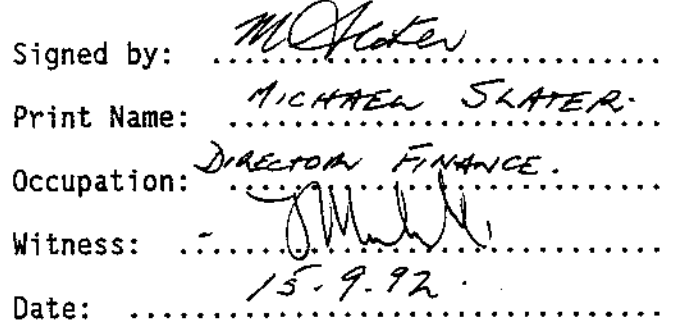 Signed by: M Slater
Print Name: MICHAEL SLATER.
Occupation: DIRECTOR FINANCE.
Witness:
Date: 15.9.92.